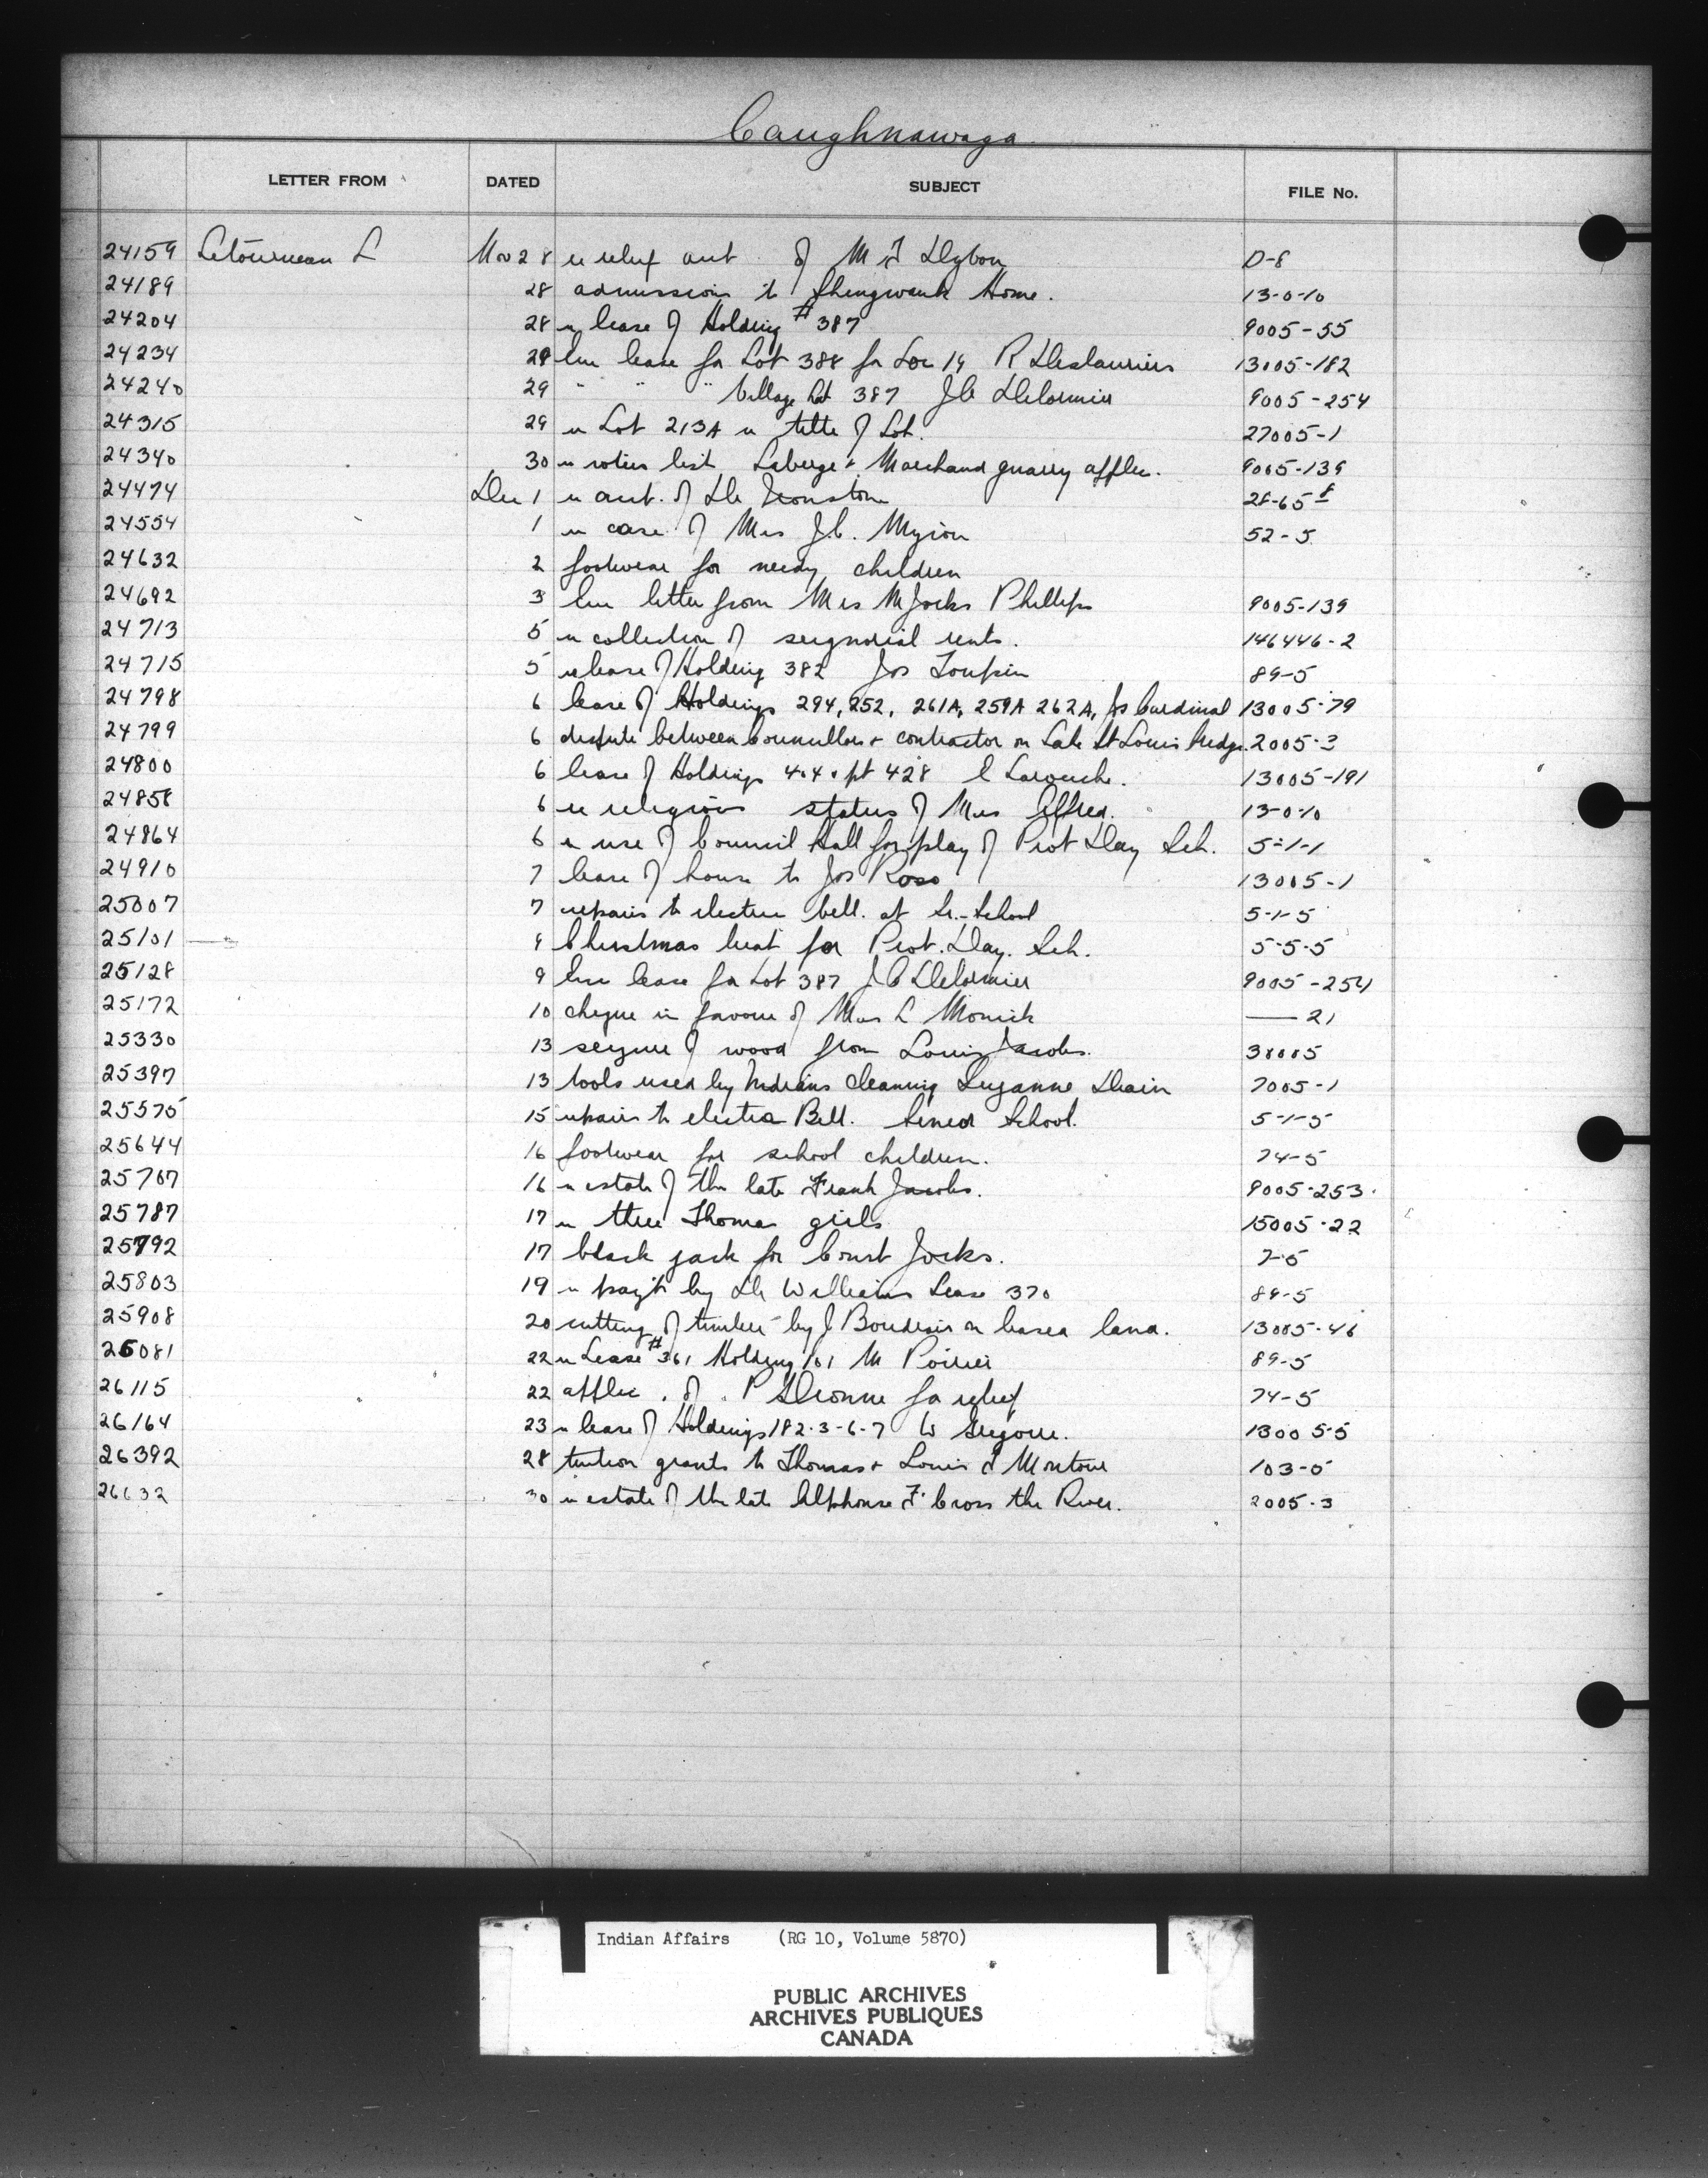 Caughnawaga
LETTER FROM DATED SUBJECT FILE No.
24159 Letourneau L Nov 28 re relief acct of M F Dybon D-8
24189 28 admission to Shingwauk Home. 13-0-10
24204 28 re lease of Holding #387 9005-55
24234 29 lease for Lot 388 for Loc 19 R Deslauriers 13005-182
24240 29 " " " Village Lot 387 J C Delormier 9005-254
24315 29 re Lot 213A re title of Lot. 27005-1
24340 30 re voters list Laberge & Marchand quarry applic. 9005-139
24474 Dec 1 re acct. of Dr 28-65
24554 1 re case of Mrs J.C. Myiow 52-5
24632 2 footwear for needy children
24692 3 letter from Mrs M Jocks Phillips 9005-139
24713 5 re collection of seignorial rents. 146446-2
24715 5 re lease of Holding 382 Jos Toupin 89-5
24798 6 lease of Holdings 294, 252, 261A, 259A 262A, Jos Cardinal 13005-79
24799 6 dispute between Councillors & contractor on Lake St Louis bridge 2005-3
24800 6 lease of Holdings 404 pt 428 C Larouche. 13005-191
24858 6 re religious status of Mrs Alfred. 13-0-10
24864 6 re use of Council Hall for play of Prot Day Sch. 5-1-1
24910 7 lease of house to Jos Ross 13005-1
25007 7 repairs to electric bell. at Sr.-School 5-1-5
25101 9 Christmas treat for Prot. Day. Sch. 5-5-5
25128 9 lease for Lot 387 J C Delormier 9005-254
25172 10 cheque in favour of Mrs L Monick — 21
25330 13 seizure of wood from Louis Jacobs. 38005
25397 13 tools used by Indians cleaning Suzanne Drain 7005-1
25575 15 repairs to electric Bell. Senior School. 5-1-5
25644 16 footwear for school children. 74-5
25707 16 re estate of the late Frank Jacobs. 9005-253.
25787 17 re three Thomas girls 15005-22
25792 17 black jack for Const Jocks. 7-5
25803 19 re pay't by Dr Williams Lease 370 89-5
25908 20 cutting of timber by J Boudrais on leased land. 13005-46
26081 22 re Lease #361 Holding 101 M Poirier 89-5
26115 22 applic. of. P Dionne for relief 74-5
26164 23 re lease of Holdings 182-3-6-7 W 13005-5
26392 28 tuition grants to Thomas & Louis d Montour 103-5
26632 30 re estate of the late Alphonse F. Cross the River. 2005-3
Indian Affairs (RG 10, Volume 5870)
PUBLIC ARCHIVES
ARCHIVES PUBLIQUES
CANADA